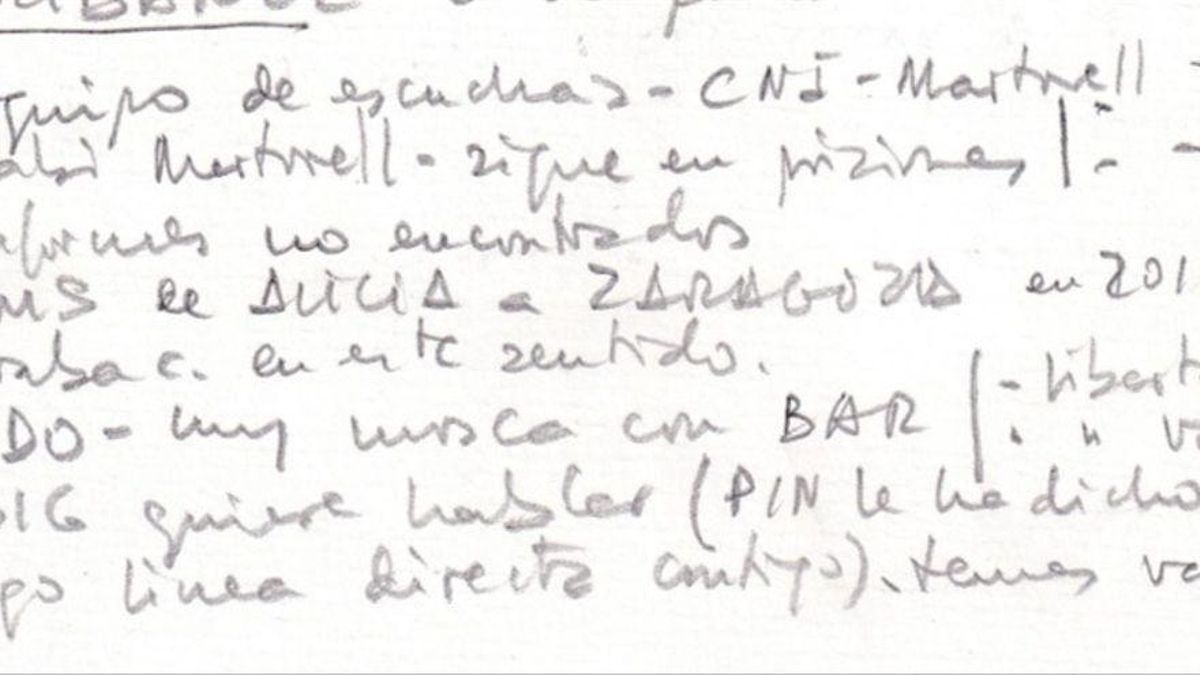 equipo de escuchas - CNI - Martorell -
Martorell - sigue en prisiones | - -
informes no encontrados
SMS de ALICIA a ZARAGOZA en 201
en este sentido.
DO - muy mosca con BAR | - libert
. "
IG quiere hablar (PIN le ha dicho
go línea directa contigo). temas va